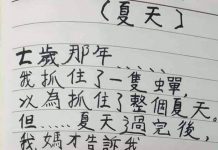 (夏天)
七歲那年......
我抓住了一隻蟬,
以為抓住了整個夏天。
但......夏天過完後,
我媽才告訴我